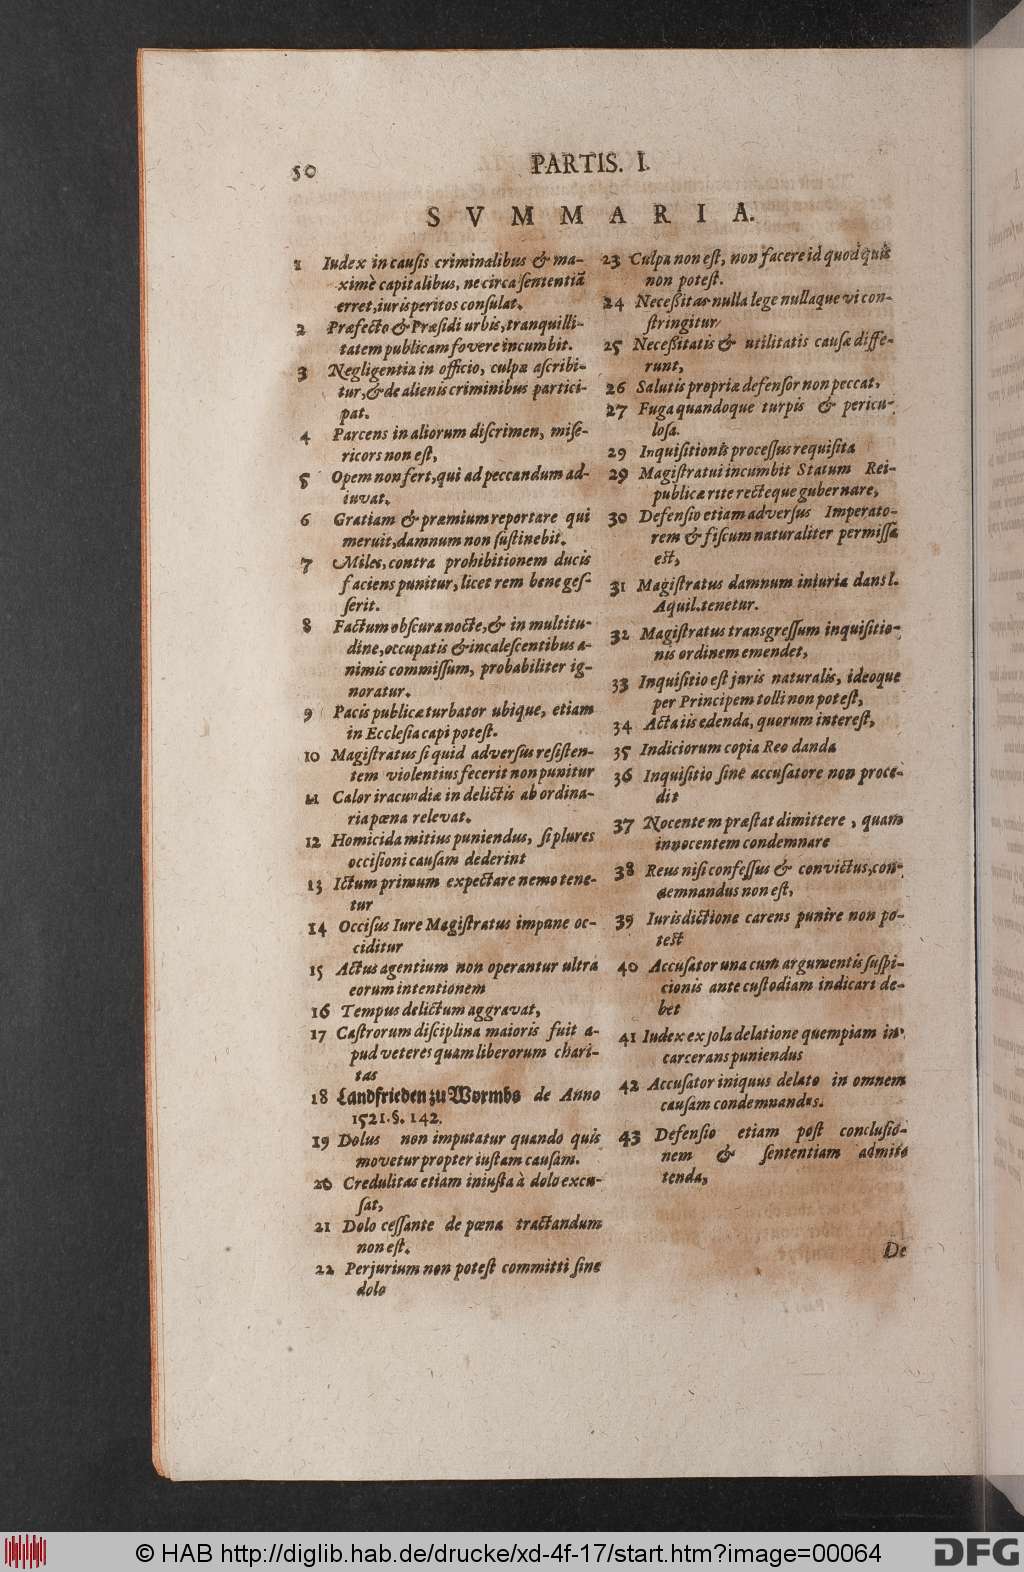 50 PARTIS. I.
SVMMARIA.
1 Iudex in causis criminalibus & ma-
ximè capitalibus, ne circa sententiã
erret, iurisperitos consulat.
2 Præfecto & Præsidi urbis, tranquilli-
tatem publicam fovere incumbit.
3 Negligentia in officio, culpæ ascribi-
tur, & de alienis criminibus partici-
pat.
4 Parcens in aliorum discrimen, mise-
ricors non est,
5 Opem non fert, qui ad peccandum ad-
iuvat.
6 Gratiam & præmium reportare qui
meruit, damnum non sustinebit.
7 Miles, contra prohibitionem ducis
faciens punitur, licet rem bene ges-
serit.
8 Factum obscura nocte, & in multitu-
dine, occupatis & incalescentibus a-
nimis commissum, probabiliter ig-
noratur.
9 Pacis publicæ turbator ubique, etiam
in Ecclesia capi potest.
10 Magistratus si quid adversus resisten-
tem violentius fecerit non punitur
11 Calor iracundiæ in delictis ab ordina-
ria pœna relevat.
12 Homicida mitius puniendus, si plures
occisioni causam dederint
13 Ictum primum expectare nemo tene-
tur
14 Occisus Iure Magistratus impune oc-
ciditur
15 Actus agentium non operantur ultra
eorum intentionem
16 Tempus delictum aggravat,
17 Castrorum disciplina maioris fuit a-
pud veteres quam liberorum chari-
tas
18 Landfrieden zu Wormbs de Anno
1521. §. 142.
19 Dolus non imputatur quando quis
movetur propter iustam causam.
20 Credulitas etiam iniusta à dolo excu-
sat,
21 Dolo cessante de pœna tractandum
non est.
22 Perjurium non potest committi sine
dolo
23 Culpa non est, non facere id quod quis
non potest.
24 Necessitas nulla lege nullaque vi con-
stringitur
25 Necessitatis & utilitatis causæ diffe-
runt,
26 Salutis propriæ defensor non peccat,
27 Fuga quandoque turpis & pericu-
losa.
29 Inquisitionis processus requisita
29 Magistratui incumbit Statum Rei-
publicæ rite recteque gubernare,
30 Defensio etiam adversus Imperato-
rem & fiscum naturaliter permissa
est,
31 Magistratus damnum iniuria dans l.
Aquil. tenetur.
32 Magistratus transgressum inquisitio-
nis ordinem emendet,
33 Inquisitio est juris naturalis, ideoque
per Principem tolli non potest,
34 Acta iis edenda, quorum interest,
35 Indiciorum copia Reo danda
36 Inquisitio sine accusatore non proce-
dit
37 Nocentem præstat dimittere, quam
innocentem condemnare
38 Reus nisi confessus & convictus, con-
demnandus non est,
39 Iurisdictione carens punire non po-
test
40 Accusator una cum argumentis suspi-
cionis ante custodiam indicari de-
bet
41 Iudex ex sola delatione quempiam in-
carcerans puniendus
42 Accusator iniquus delato in omnem
causam condemnandus.
43 Defensio etiam post conclusio-
nem & sententiam admit-
tenda,
De
© HAB http://diglib.hab.de/drucke/xd-4f-17/start.htm?image=00064
DFG